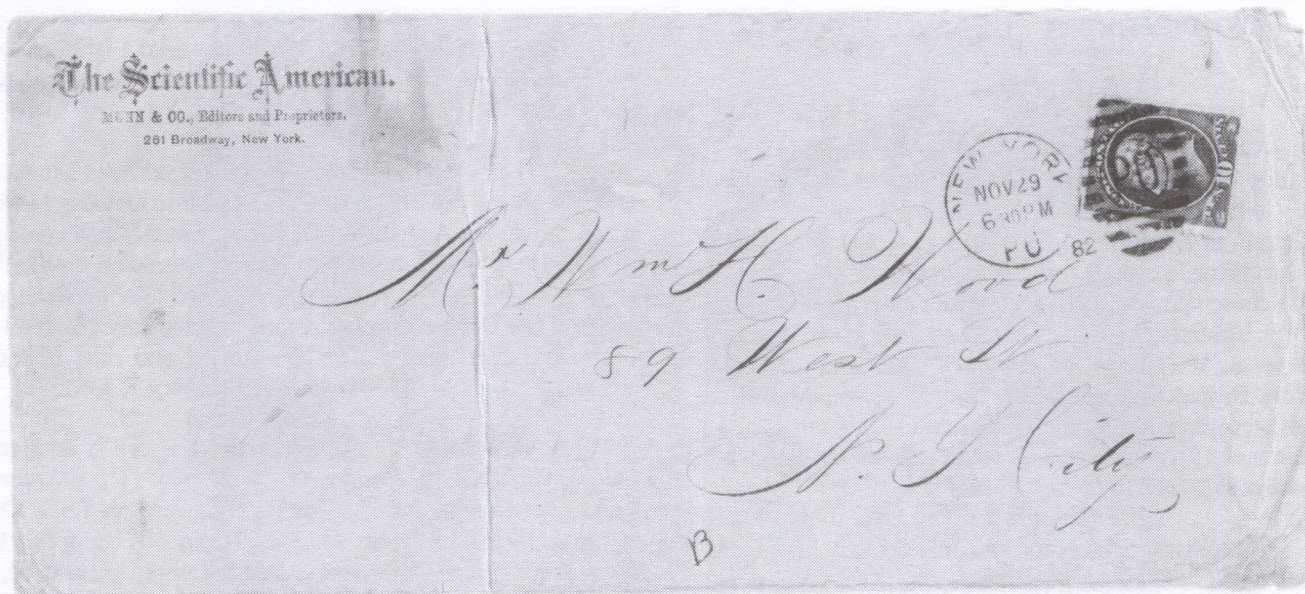 The Scientific American.
MUNN & CO., Editors and Proprietors.
261 Broadway, New York.
NEW YORK
NOV 29
6 30 PM
82
Mr Wm H. Wood
89 West St
N. Y City
B